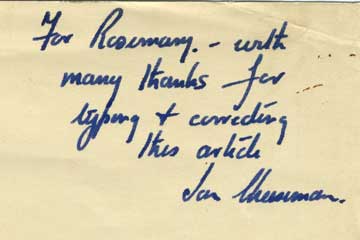 For Rosemary. - with
many thanks for
typing & correcting
this article
Ian Cheeseman.